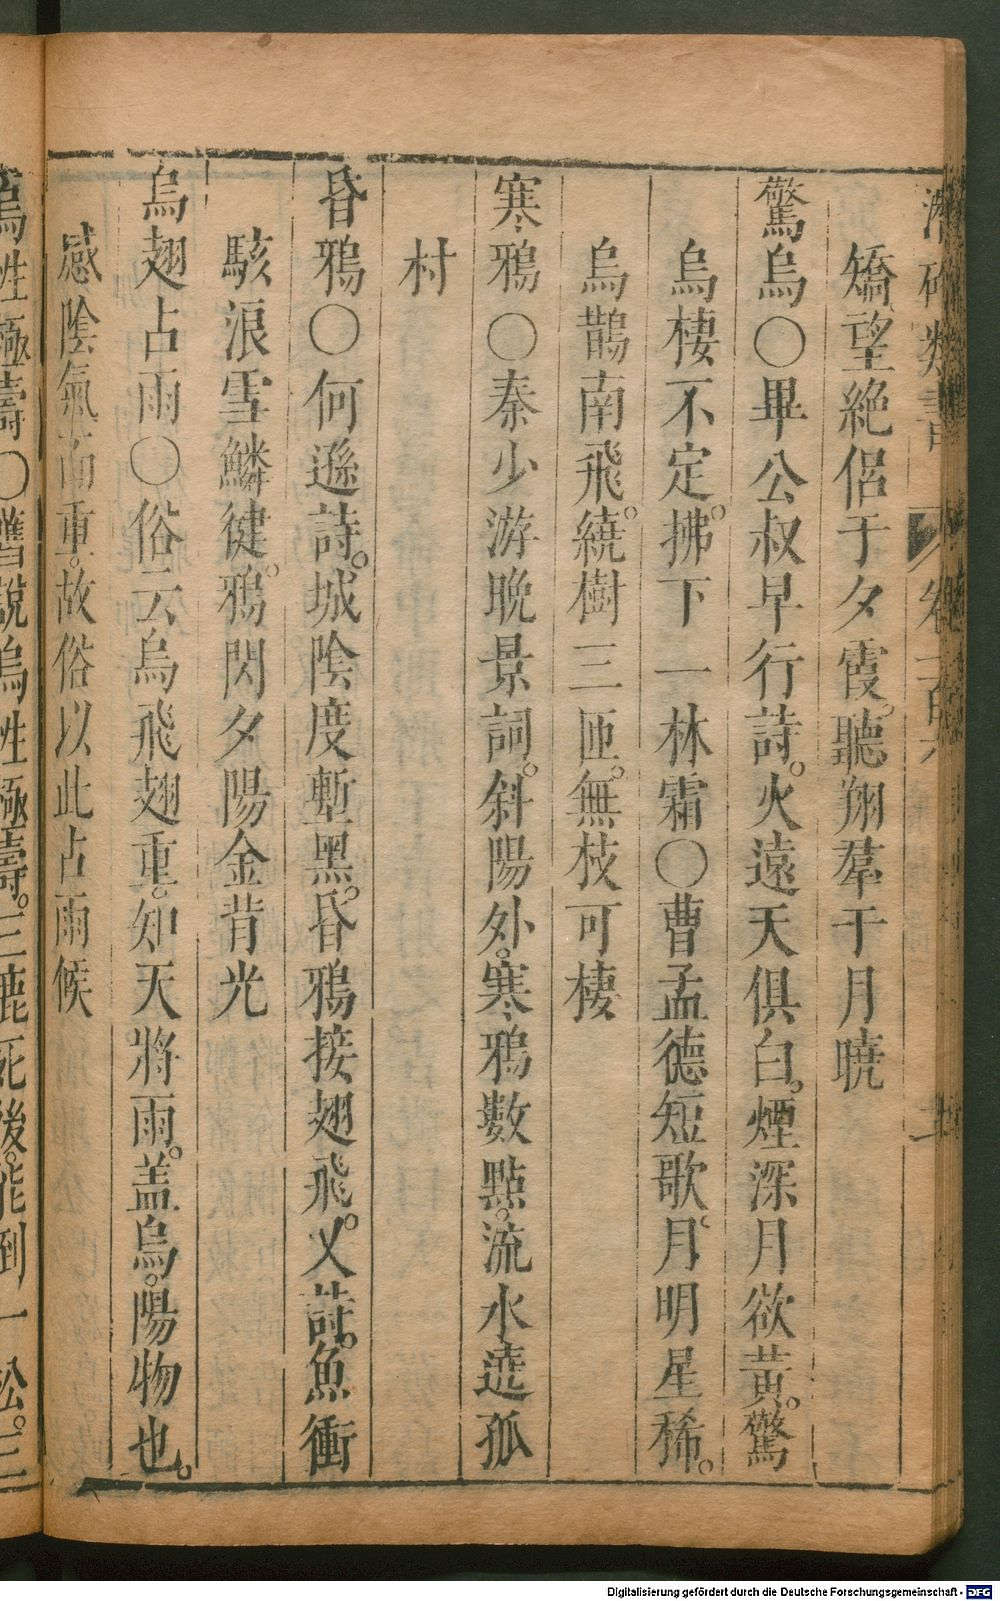 潛確類書 卷一百八 二
矯望絕侶于夕霞。聽翔羣于月曉
驚烏〇畢公叔早行詩。火遠天俱白。煙深月欲黃。驚
烏棲不定。拂下一林霜〇曹孟德短歌。月明星稀。
烏鵲南飛。繞樹三匝。無枝可棲
寒鴉〇秦少游晚景詞。斜陽外。寒鴉數點。流水遶孤
村
昏鴉〇何遜詩。城陰度塹黑。昏鴉接翅飛。又詩。魚衝
駭浪雪鱗健。鴉閃夕陽金背光
烏翅占雨〇俗云烏飛翅重。知天將雨。盖烏。陽物也。
感陰氣而重。故俗以此占雨候
烏性極壽〇舊說烏性極壽。三鹿死後。能倒一松。三
Digitalisierung gefördert durch die Deutsche Forschungsgemeinschaft - DFG